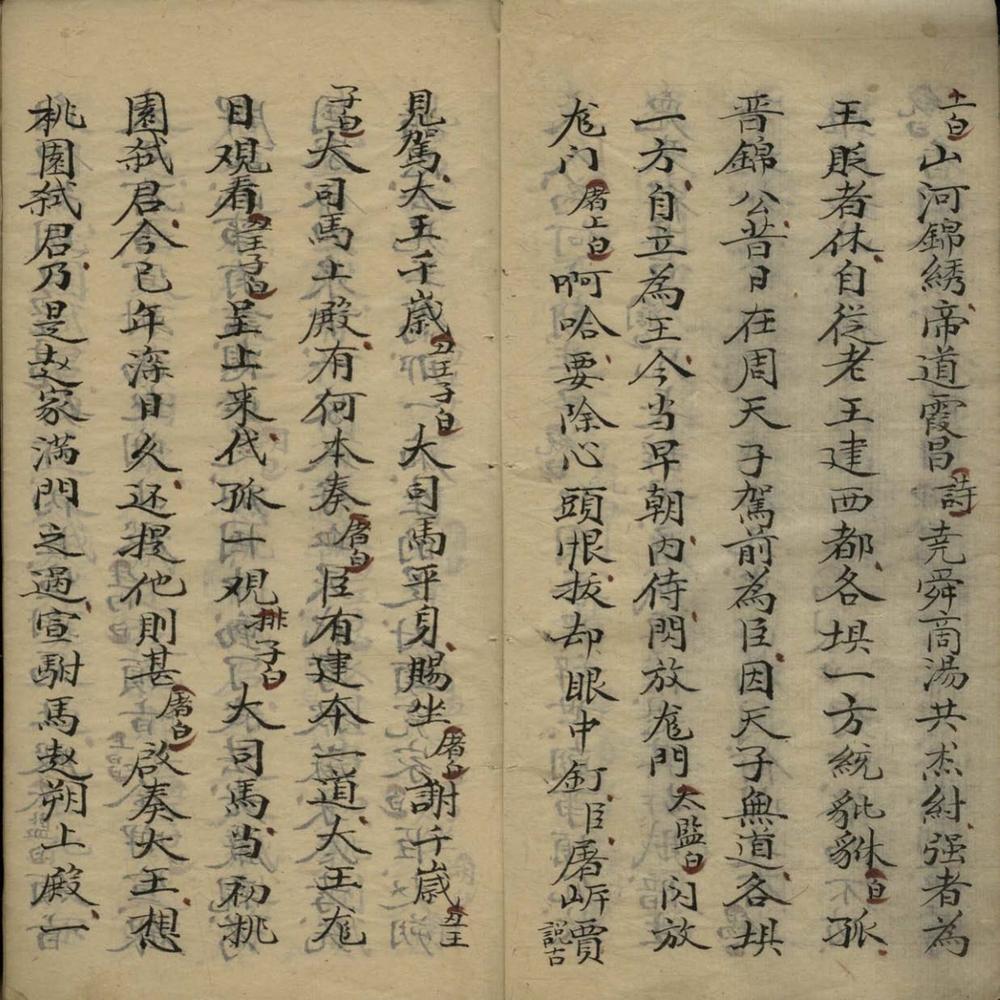 上白山河錦綉帝道霞昌詩尭舜商湯共杰紂强者為
王貶者休自從老王建西都各垻一方統豼貅白孤
晋錦公昔日在周天子駕前為臣因天子無道各垻
一方自立為王今当早朝内侍閃放尨門太監白闪放
尨门屠上白啊哈要除心頭恨拔却眼中釘臣屠岍賈説古
見駕大王千歲丑王子白大司馬平身賜坐屠白謝千歲丑王
子白大司馬上殿有何本奏屠白臣有建本一道大王尨
目观看丑王子白呈上来代孤一观排子白大司馬当初桃
園弒君今已年深日久还提他則甚屠白啟奏大王想
桃園弒君乃是赵家满門之過宣駙馬赵朔上殿一